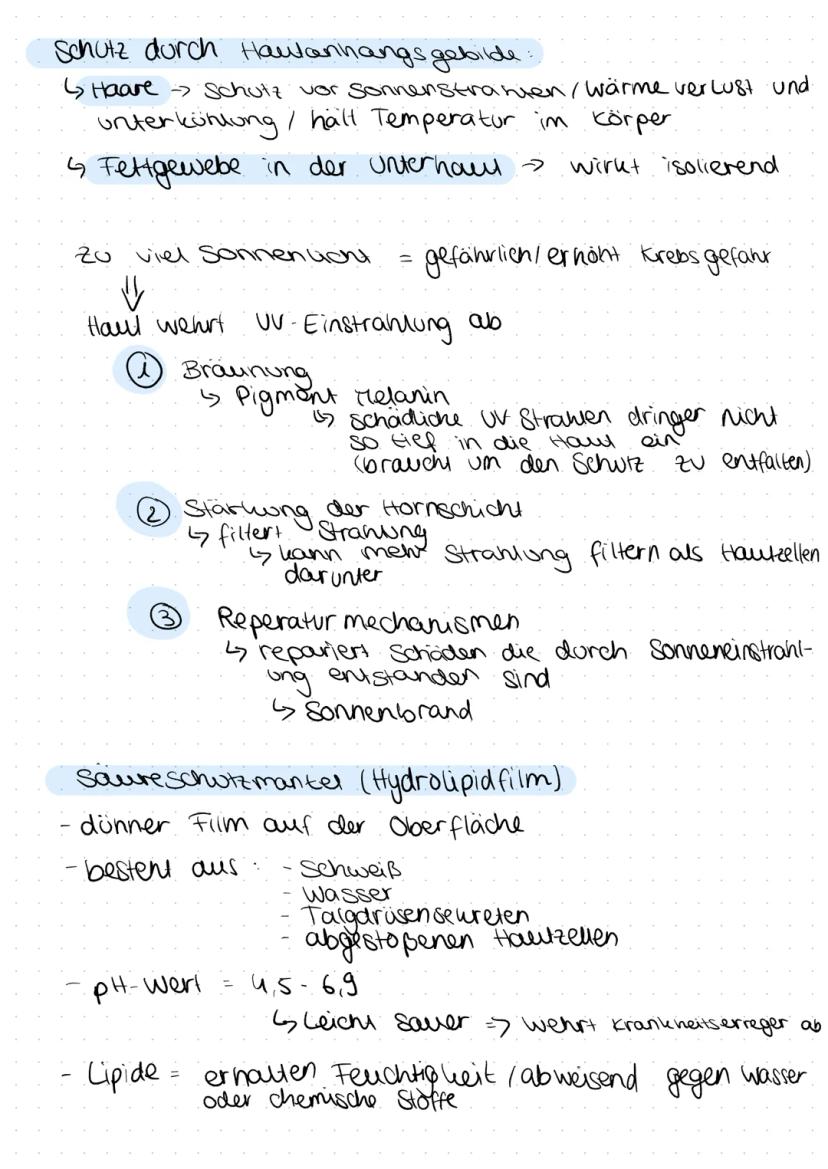 Schutz durch Hautanhangsgebilde:
↳ Haare → Schutz vor Sonnenstrahlen / Wärmeverlust und
unterkühlung / hält Temperatur im Körper
↳ Fettgewebe in der Unterhaut → wirkt isolierend
Zu viel Sonnenlicht = gefährlich / erhöht Krebsgefahr
⇓
Haut wehrt UV-Einstrahlung ab
① Bräunung
↳ Pigment Melanin
↳ schädliche UV Strahlen dringen nicht
so tief in die Haut ein
(braucht um den Schutz zu entfalten)
② Stärkung der Hornschicht
↳ filtert Strahlung
↳ kann mehr Strahlung filtern als Hautzellen
darunter
③ Reperaturmechanismen
↳ repariert Schäden die durch Sonneneinstrahl-
ung entstanden sind
↳ Sonnenbrand
Säureschutzmantel (Hydrolipidfilm)
- dünner Film auf der Oberfläche
- besteht aus: - Schweiß
- Wasser
- Talgdrüsensekreten
- abgestoßenen Hautzellen
- pH-Wert = 4,5 - 6,9
↳ Leicht sauer => wehrt Krankheitserreger ab
- Lipide = erhalten Feuchtigkeit / abweisend gegen Wasser
oder chemische Stoffe